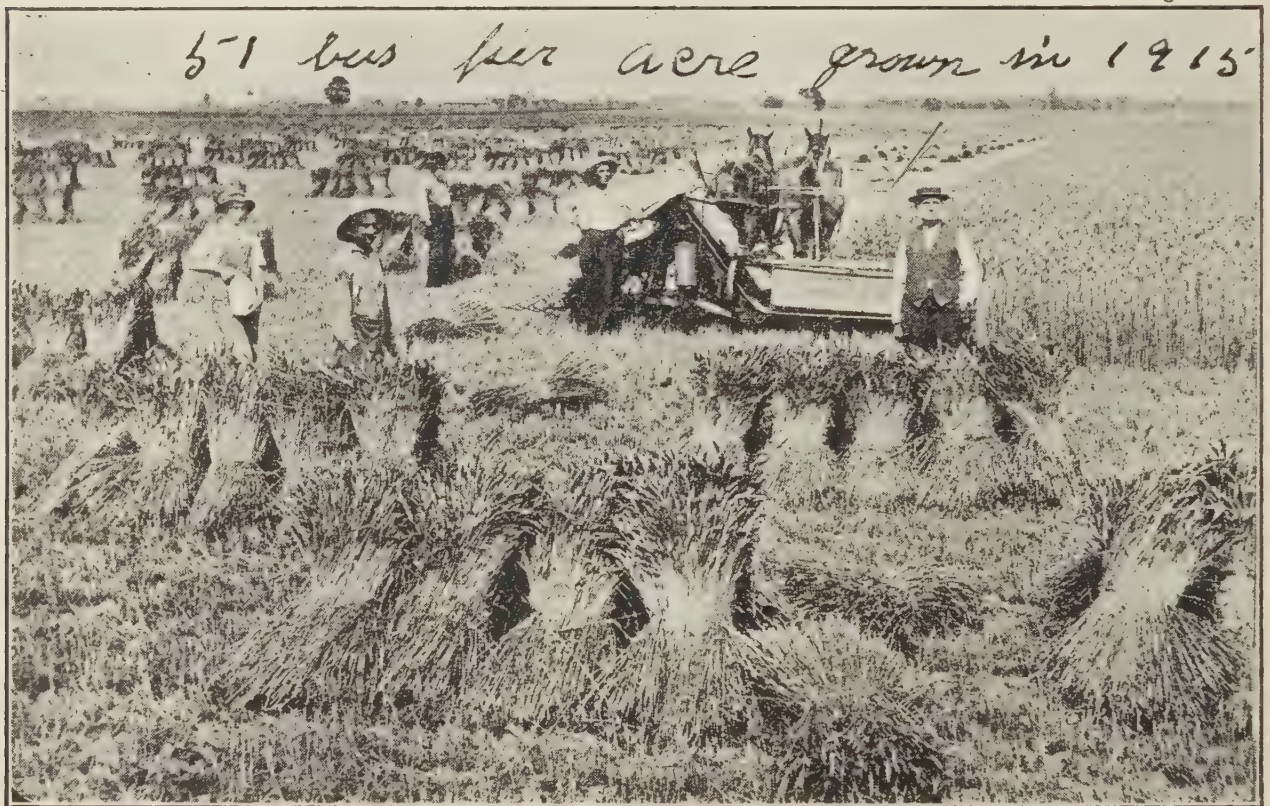 51 bus per acre grown in 1915